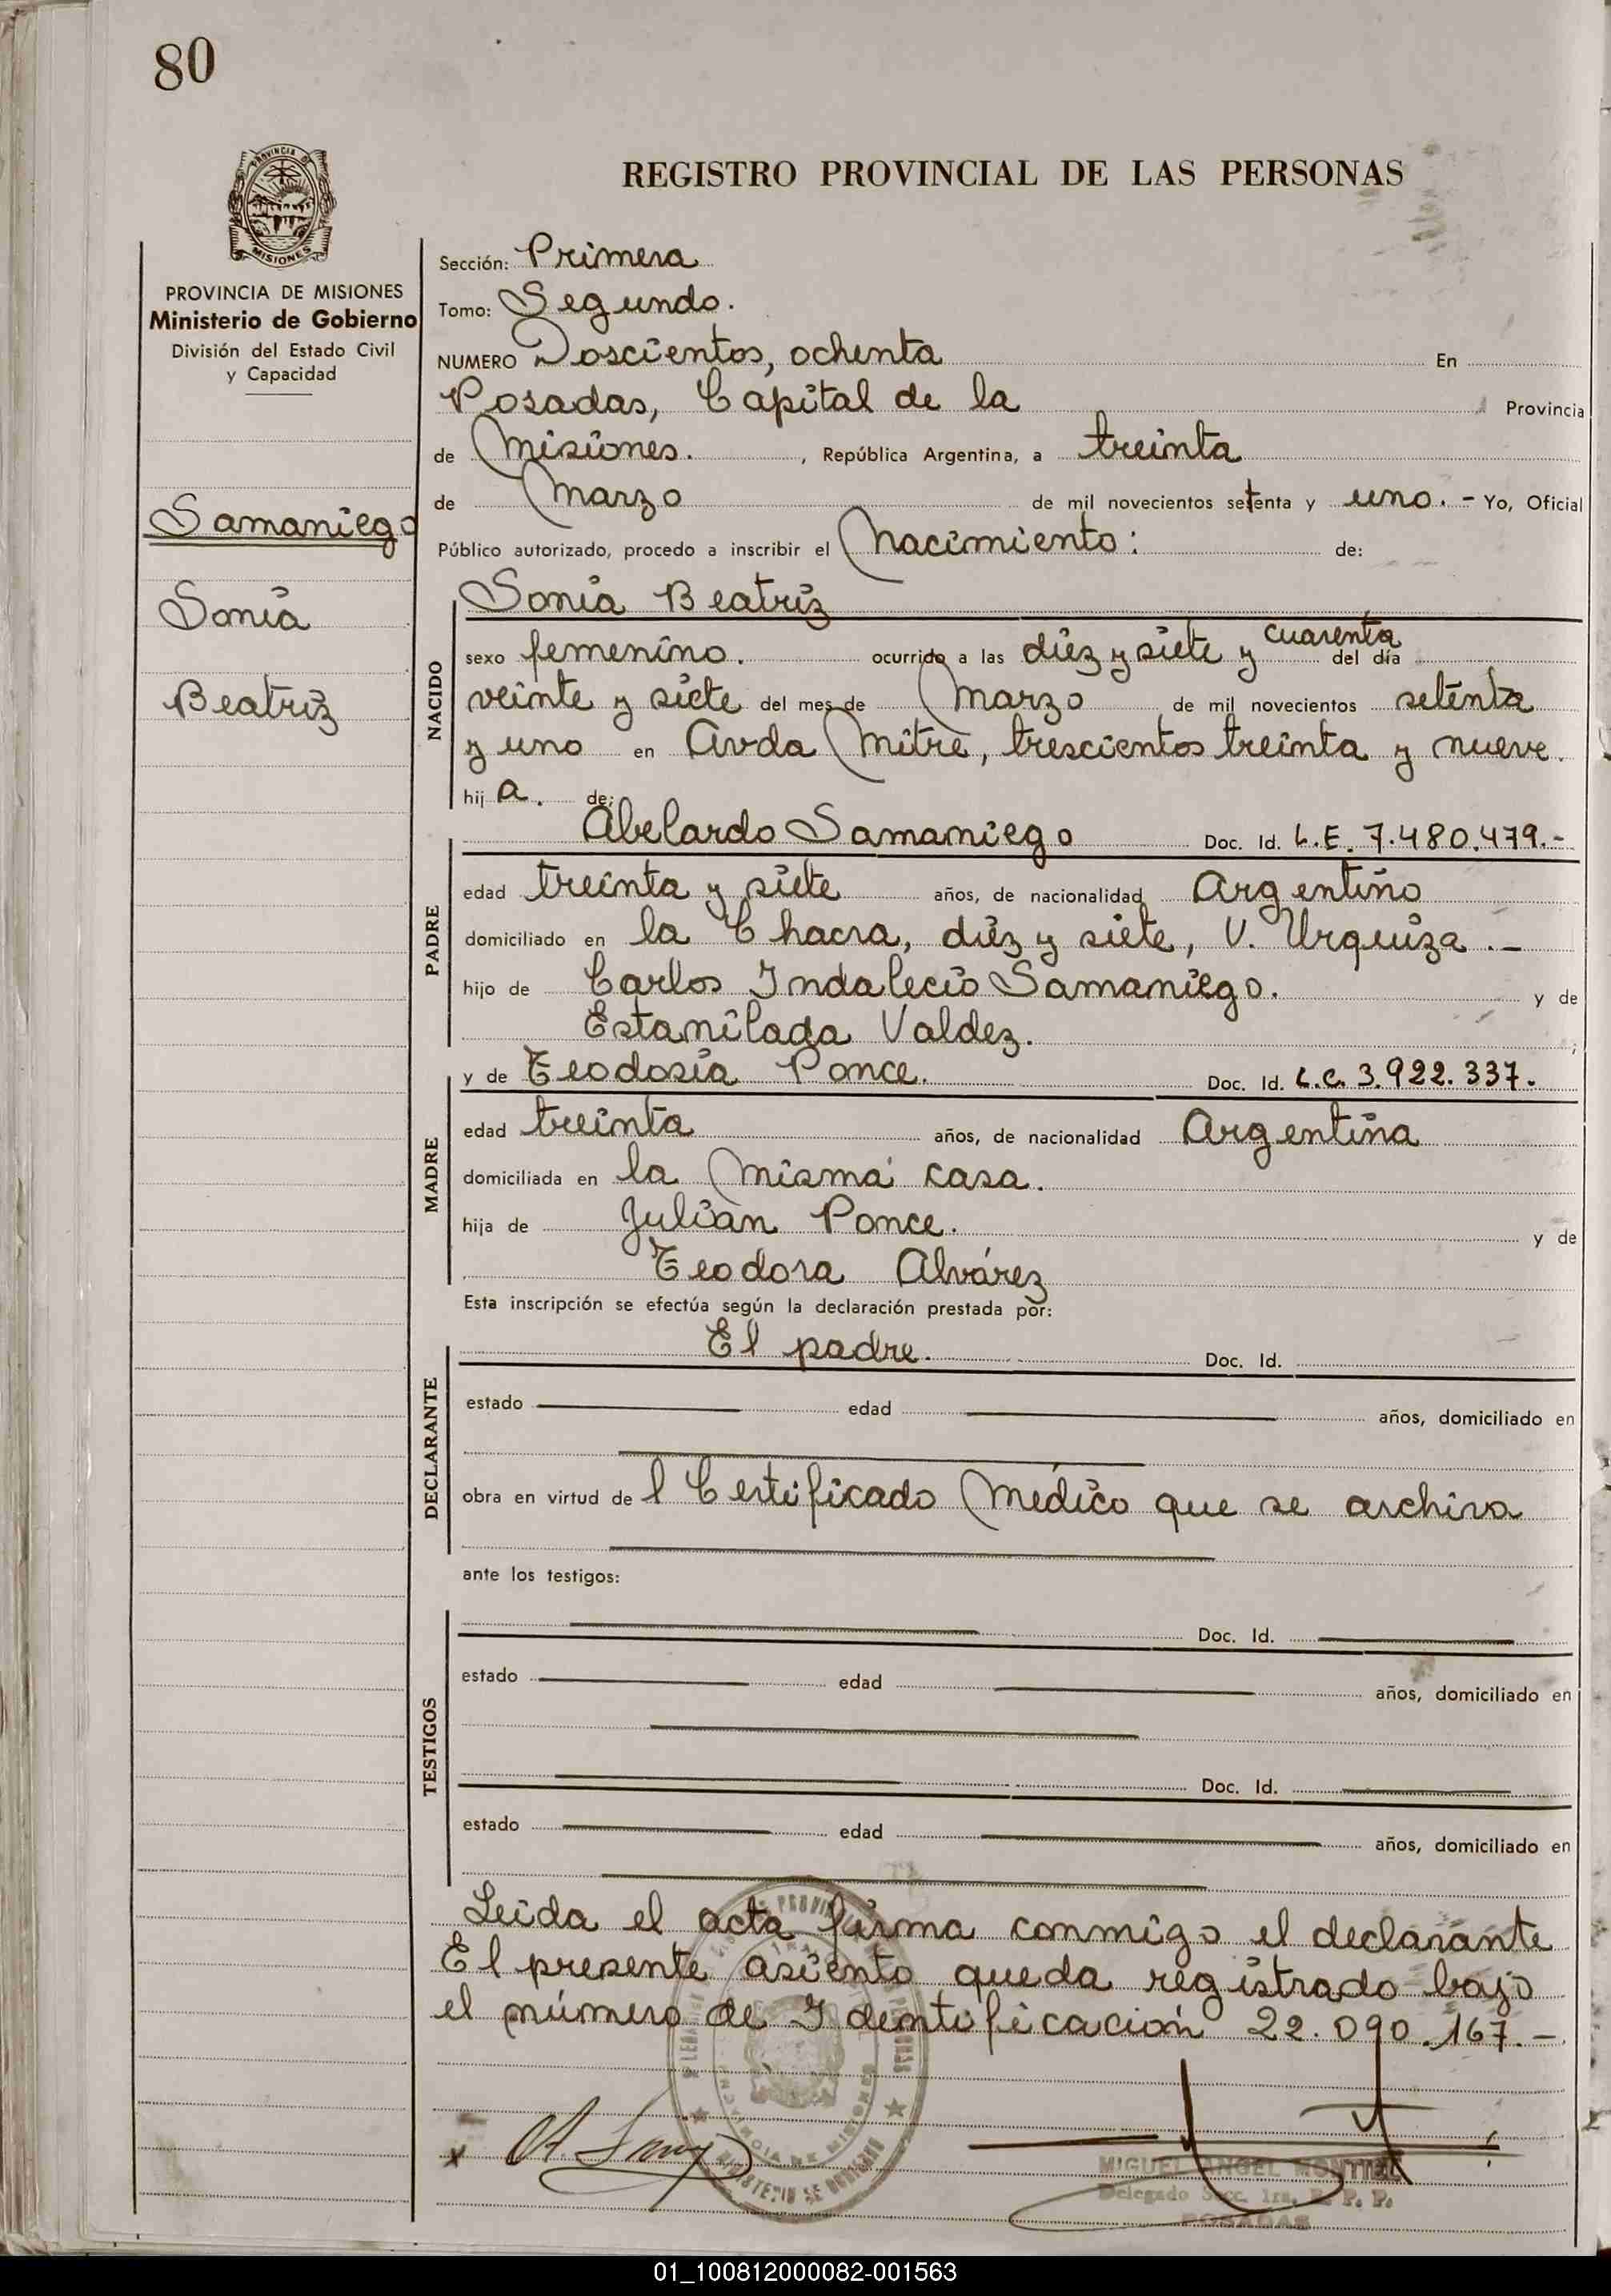 80
PROVINCIA DE
MISIONES
REGISTRO PROVINCIAL DE LAS PERSONAS
PROVINCIA DE MISIONES
Ministerio de Gobierno
División del Estado Civil
y Capacidad
Samaniego
Sonia
Beatriz
Sección: Primera
Tomo: Segundo.
NUMERO Doscientos, ochenta En
Posadas, Capital de la Provincia
de Misiones. , República Argentina, a treinta
de Marzo de mil novecientos setenta y uno. - Yo, Oficial
Público autorizado, procedo a inscribir el Nacimiento: de:
NACIDO
Sonia Beatriz
sexo femenino. ocurrido a las diez y siete y cuarenta del día
veinte y siete del mes de Marzo de mil novecientos setenta
y uno en Avda Mitre, trescientos treinta y nueve.
hij a. de:
PADRE
Abelardo Samaniego Doc. Id. L.E. 7.480.479.-
edad treinta y siete años, de nacionalidad Argentino
domiciliado en la Chacra, diez y siete, V. Urquiza .-
hijo de Carlos Indalecio Samaniego. y de
Estanilada Valdez. ;
MADRE
y de Teodosia Ponce. Doc. Id. L.C. 3.922.337.
edad treinta años, de nacionalidad Argentina
domiciliada en la misma casa.
hija de Julián Ponce. y de
Teodora Alvárez
Esta inscripción se efectúa según la declaración prestada por:
DECLARANTE
El padre. Doc. Id.
estado edad años, domiciliado en
obra en virtud de l Certificado Médico que se archiva
ante los testigos:
TESTIGOS
Doc. Id.
estado edad años, domiciliado en
Doc. Id.
estado edad años, domiciliado en
Leida el acta firma conmigo el declarante
El presente asiento queda registrado bajo
el número de Identificación 22.090.167.-
MIGUEL ANGEL MONTIEL
Delegado Secc. 1ra. R. P. P.
POSADAS
01_100812000082-001563